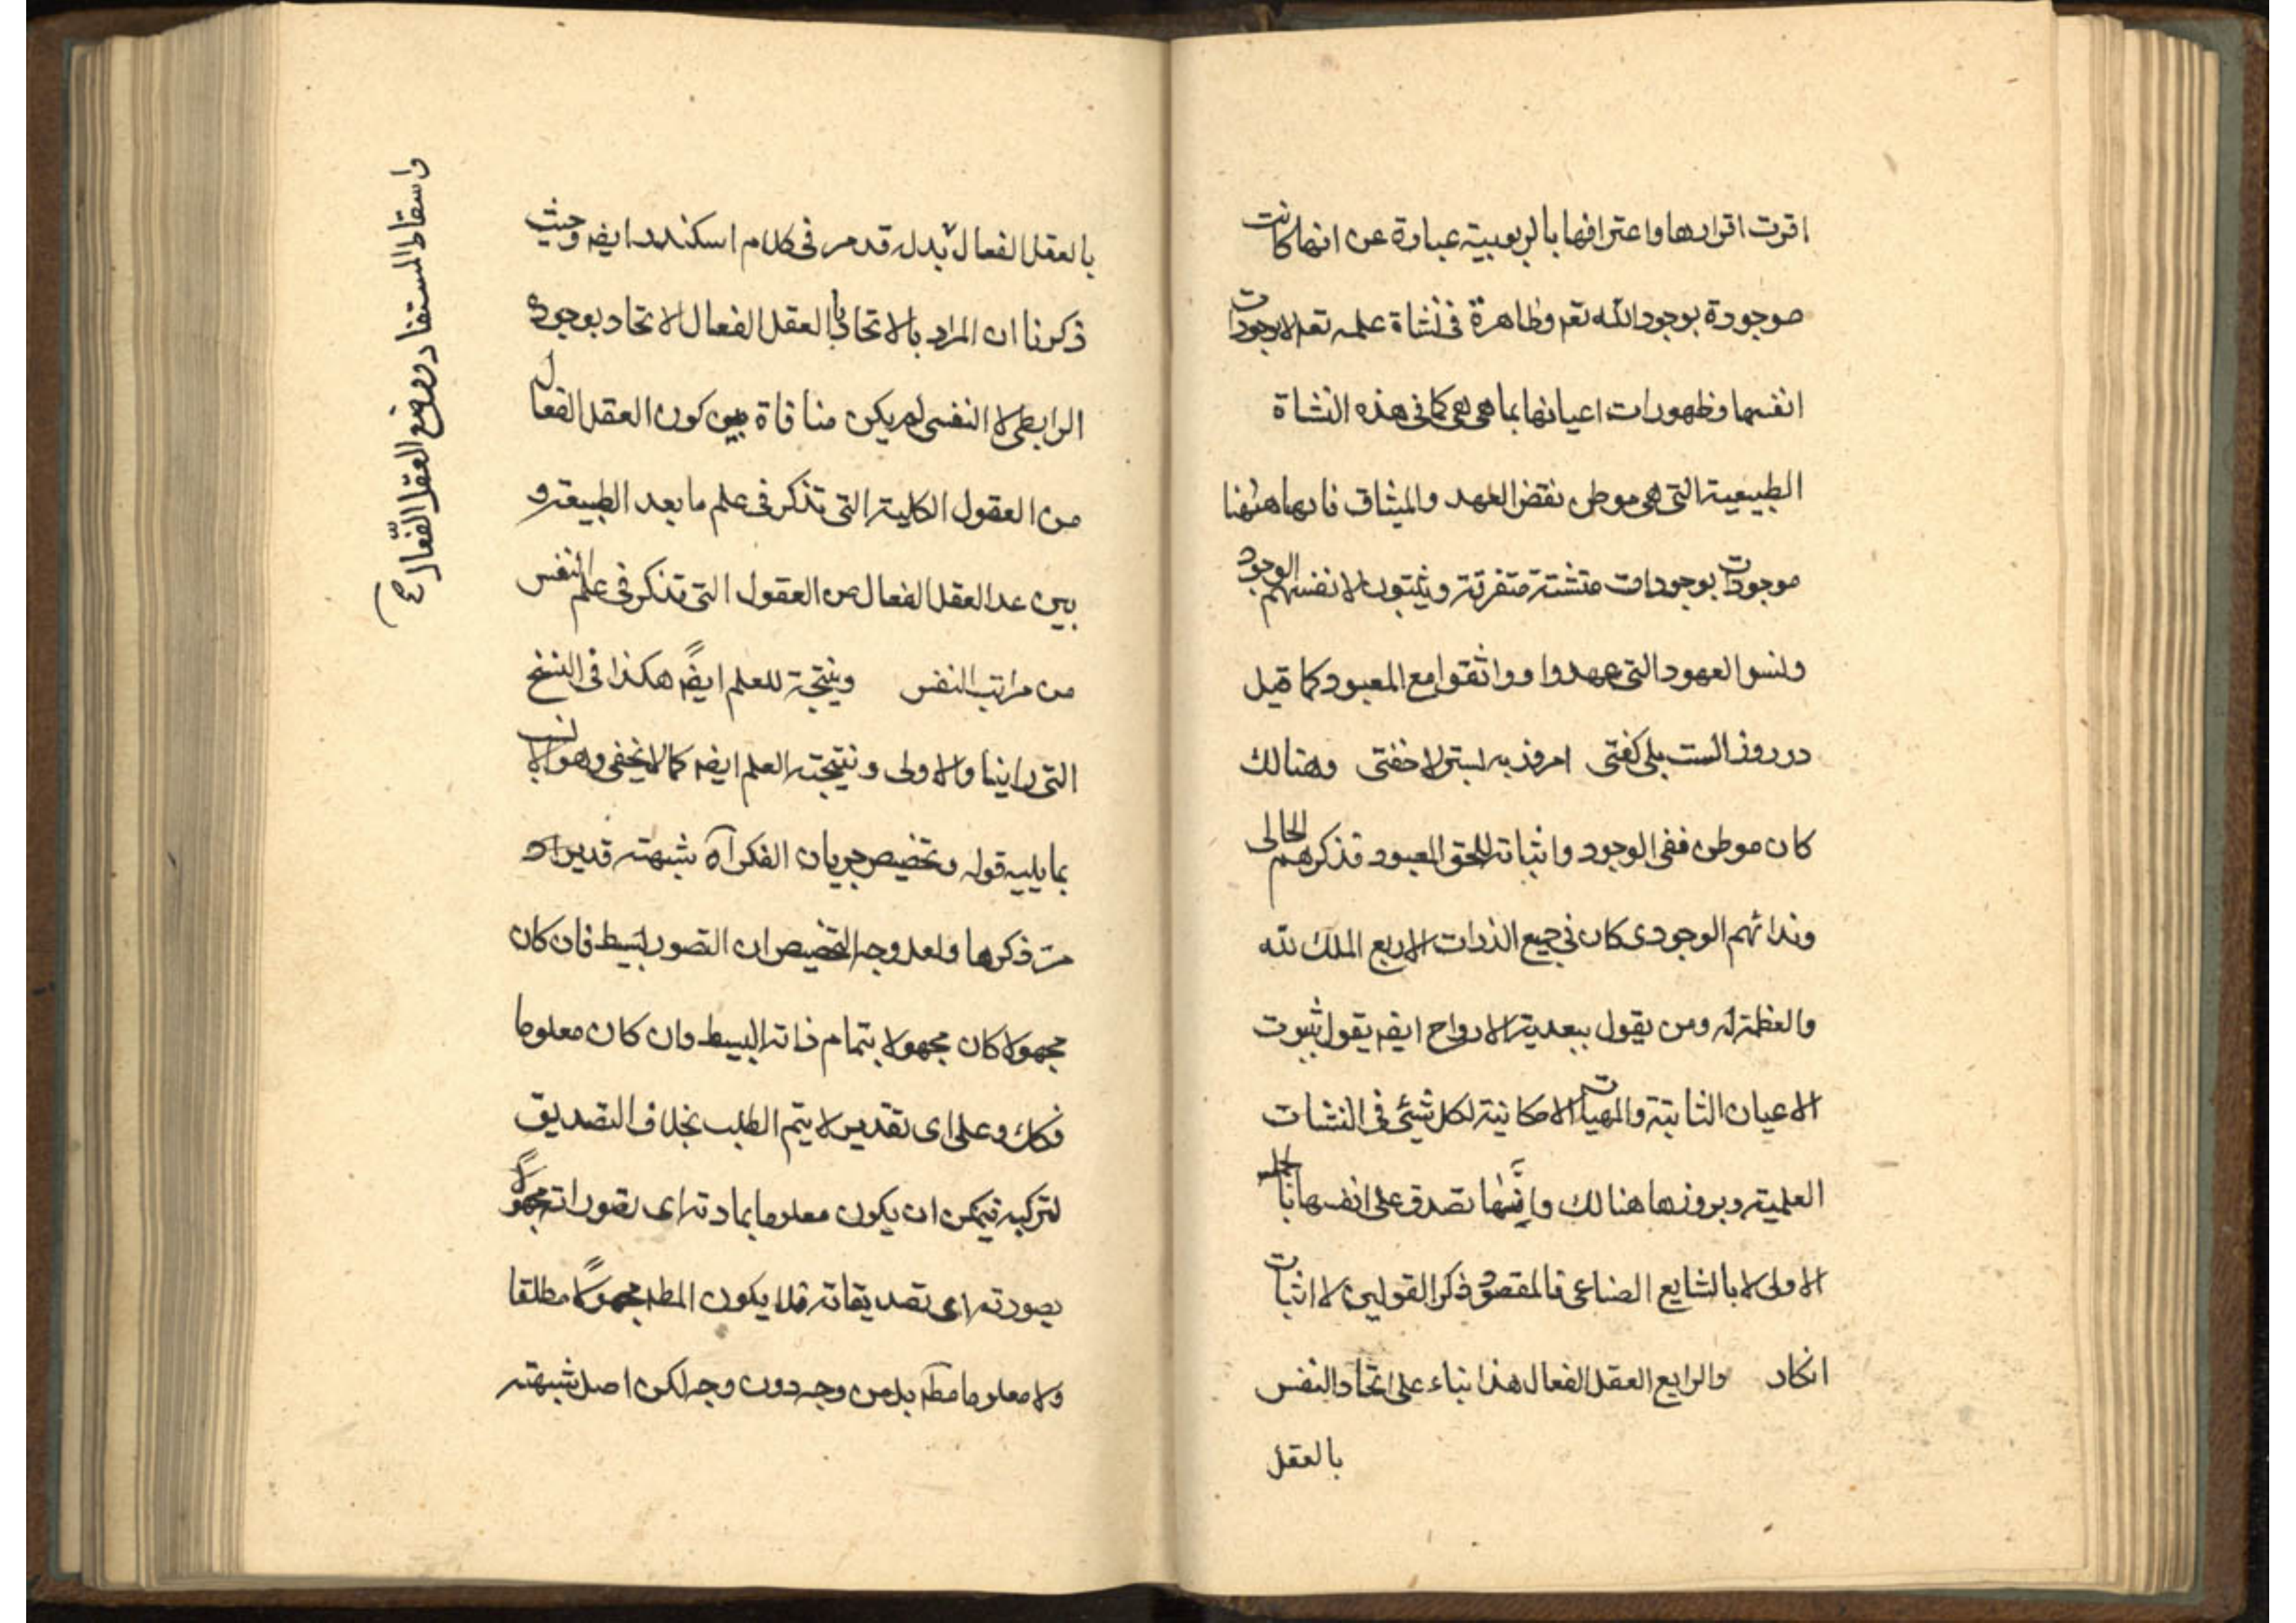 اقرت اقرارها واعترافها بالربوبية عبارة عن انها كانت
موجودة بوجود الله تعم وظاهرة فى نشاة علمه تعم لا بوجودات
انفسها وظهورات اعيانها بما هى هى كما فى هذه النشاة
الطبيعية التى هى موطن نقض العهد والميثاق فانها ههنا
موجودات بوجودات متشتتة متفرقة ويثبتون لانفسهم الوجود
ونسوا العهود التى عهدوا وواثقوا مع المعبود كما قيل
در روز الست بلى كفتى امروز به بستر لا خفتى وهنالك
كان موطن ففى الوجود واثباته للحق المعبود فذكرهم الحالى
وندائهم الوجودى كان فى جميع الذرات الاربع الملك لله
والعظمة له ومن يقول ببعدية الارواح ايضه يقول بثبوت
الاعيان الثابتة والمهيات الامكانية لكل شيئى فى النشات
العلمية وبروزها هنالك وانيتها تصدق على انفسها بالحمل
الاولى لا بالشايع الصناعى فالمقصود ذكر القولين لا اثبات
انكاد والرابع العقل الفعال هذا بناء على اتحاد النفس
بالعقل
بالعقل الفعال بدله قد مر فى كلام اسكندر ايضه وحيث
ذكرنا ان المراد بالاتحاد بالعقل الفعال الاتحاد بوجوده
الرابطى لا النفسى لم يكن منافاة بين كون العقل الفعال
من العقول الكلية التى تذكر فى علم ما بعد الطبيعة و
بين عد العقل الفعال من العقول التى تذكر فى علم النفس
من مراتب النفس وينتجة للعلم ايضهً هكذا فى النسخ
التى راينا والاولى ونتيجته العلم ايضه كما لا يخفى وهو الانسب
بما يليه قوله وتخصيص جريان الفكر آه شبهته قديراد
مرّ ذكرها ولعل وجه التخصيص ان التصور بسيط فان كان
مجهولا كان مجهولا بتمام ذاته البسيط وان كان معلوما
فكك وعلى اى تقدير لا يتم الطلب بخلاف التصديق
لتركبه فيمكن ان يكون معلوما بمادته اى تصوراته مجهولاً
بصورته اى تصديقاته فلا يكون المطه مجهولاً مطلقا
ولا معلوما مطه بل من وجه دون وجه لكن اصل شبهته
واسقاط المستفاد ووضع العقل الفعّال ع